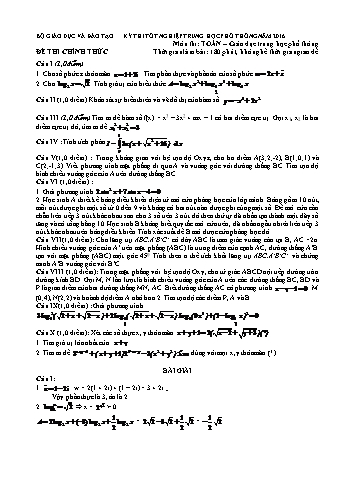 BỘ GIÁO DỤC VÀ ĐÀO TẠO KỲ THI TỐT NGHIỆP TRUNG HỌC PHỔ THÔNG NĂM 2016
Môn thi: TOÁN – Giáo dục trung học phổ thông
ĐỀ THI CHÍNH THỨC Thời gian làm bài: 180 phút, không kể thời gian giao đề
Câu I (2,0điểm)
1. Cho số phức z thỏa mãn z=1+2i. Tìm phần thực và phần ảo của số phức w=2z+z̄
2. Cho log₂x=√2. Tính giá trị của biểu thức
Câu II (1,0 điểm) Khảo sát sự biến thiên và vẽ đồ thị của hàm số y=-x⁴+2x²
Câu III (2,0 điểm) Tìm m để hàm số f(x) = x³ – 3x² + mx – 1 có hai điểm cực trị. Gọi x₁, x₂ là hai
điểm cực trị đó, tìm m để x₁²+x₂²=3
Câu IV: Tính tích phân
Câu V(1,0 điểm) : Trong không gian với hệ tọa độ Oxyz, cho ba điểm A(3,2,-2), B(1,0,1) và
C(2,-1,3). Viết phương trình mặt phẳng đi qua A và vuông góc với đường thẳng BC. Tìm tọa độ
hình chiếu vuông góc của A trên đường thẳng BC.
Câu VI (1,0 điểm) :
1. Giải phương trình 2sin²x+7sinx-4=0
2. Học sinh A thiết kế bảng điều khiển điện tử mở cửa phòng học của lớp mình. Bảng gồm 10 nút,
mỗi nút được ghi một số từ 0 đến 9 và không có hai nút nào được ghi cùng một số. Để mở cửa cần
nhấn liên tiếp 3 nút khác nhau sao cho 3 số trên 3 nút đó theo thứ tự đã nhấn tạo thành một dãy số
tăng và có tổng bằng 10. Học sinh B không biết quy tắc mở cửa trên, đã nhấn ngẫu nhiên liên tiếp 3
nút khác nhau trên bảng điều khiển. Tính xác suất để B mở được cửa phòng học đó.
Câu VII(1,0 điểm): Cho lăng trụ ABC.A'B'C' có đáy ABC là tam giác vuông cân tại B, AC =2a.
Hình chiếu vuông góc của A' trên mặt phẳng (ABC) là trung điểm của cạnh AC, đường thẳng A'B
tạo với mặt phẳng (ABC) một góc 45⁰. Tính theo a thể tích khối lăng trụ ABC.A'B'C' và chứng
minh A'B vuông góc với B'C.
Câu VIII (1,0 điểm): Trong mặt phẳng với hệ tọa độ Oxy, cho tứ giác ABCD nội tiếp đường tròn
đường kính BD. Gọi M, N lần lượt là hình chiếu vuông góc của A trên các đường thẳng BC, BD và
P là giao điểm của hai đường thẳng MN, AC. Biết đường thẳng AC có phương trình x-y-1=0, M
(0,4), N(2,2) và hoành độ điểm A nhỏ hơn 2. Tìm tọa độ các điểm P, A và B.
Câu IX(1,0 điểm) : Giải phương trình
Câu X (1,0 điểm): Xét các số thực x, y thỏa mãn x+y+1=2(√x-2+√y+3)(*)
1. Tìm giá trị lớn nhất của x+y
2. Tìm m để đúng với mọi x, y thỏa mãn (*)
BÀI GIẢI
Câu 1:
1. w = 2(1 + 2i) + (1 – 2i) = 3 + 2i
Vậy phần thực là 3, ảo là 2